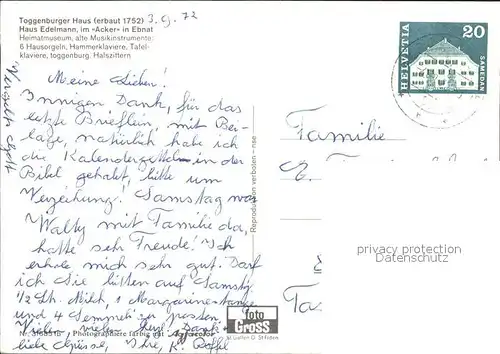 Toggenburger Haus (erbaut 1752)
3. 9. 72
Haus Edelmann, im «Acker» in Ebnat
Heimatmuseum, alte Musikinstrumente:
6 Hausorgeln, Hammerklaviere, Tafel-
klaviere, toggenburg. Halszittern
Meine Lieben!
Innigen Dank, für das
letzte Brieflein, mit Bei-
lage, natürlich habe ich
die Kalenderzettel in der
Bibel gehabt, bitte um
Verzeihung! Samstag war
Walty mit Familie da,
hatte sehr Freude! Ich
erhole mich sehr gut. Darf
ich Sie bitten auf Samstg
1/2 Lt. Milch, 1 Margarinestange
und 4 Semmeli zu posten.
Viele herzl. Dank
liebe Grüsse, Ihre, K.
Vergelts Gott
Reproduktion verboten - nse
Photographiere farbig mit Agfacolor
foto
Gross
St. Gallen
HELVETIA
20
SAMEDAN
Familie
privacy protection
Datenschutz